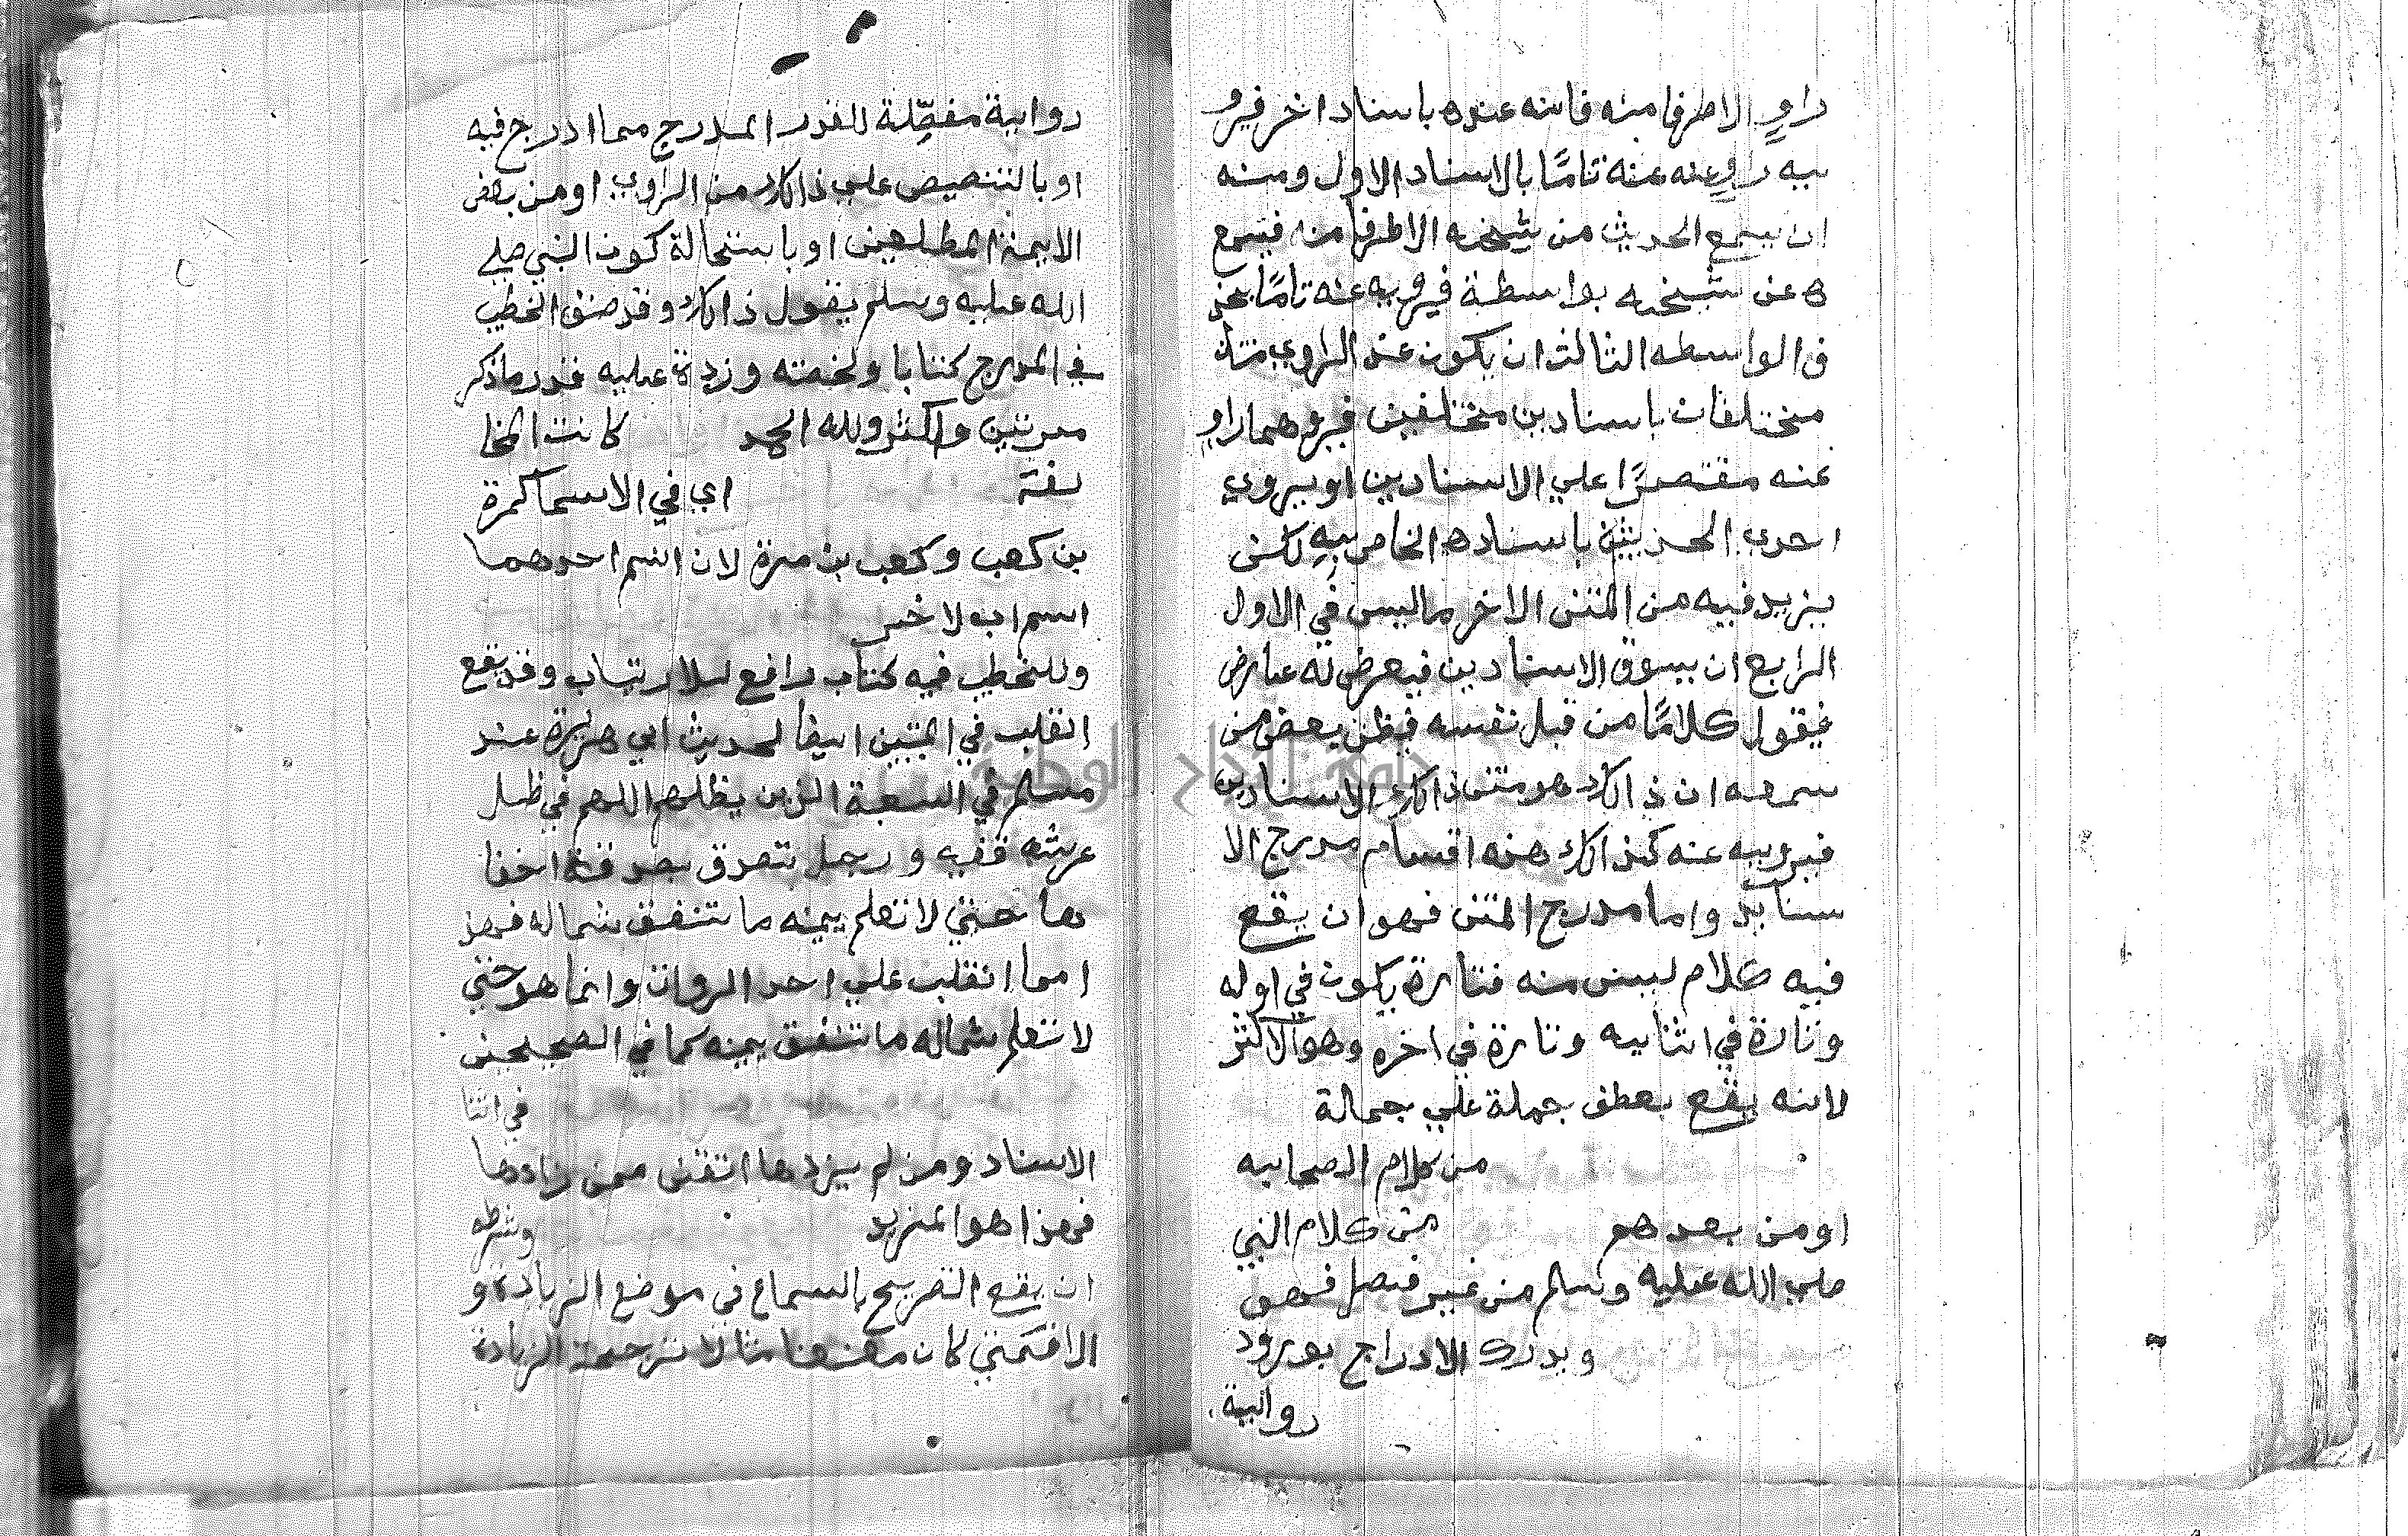 راوٍ الا طرفا منه فانه عنده باسناد اخر فيرو
يه راوٍ عنه عنه تامًا بالاسناد الاول ومنه
ان يسمع الحديث من شيخه الا طرفا منه فيسمع
ه عن شيخه بواسطة فيرويه عنه تامًا بحذ
ف الواسطه الثالث ان يكون عند الراوي متنان
مختلفان باسنادين مختلفين فيرويهما راوٍ
عنه مقتصرًا علي الاسنادين او يروي
احدي الحديثين باسناده الخاص به لكن
يزيد فيه من المتن الاخر ما ليس في الاول
الرابع ان يسوق الاسنادين فيعرض له عارض
فيقول كلامًا من قبل نفسه فيظن بعض من
سمعه ان ذالك هو متن ذالك الاسنادين
فيرويه عنه كذالك هذه اقسام مدرج الا
سنايد واما مدرج المتن فهو ان يقع
فيه كلام ليس منه فتارة يكون في اوله
وتارة في اثنايه وتارة في اخره وهو الاكثر
لانه يقع بعطف جملة علي جمالة
من كلام الصحابه
او من بعدهم من كلام النبي
صلي الله عليه وسلم من غير فصل فهو
ويدرك الادراج بورود
رواية
رواية مفصِّلة للقدر المدرج مما ادرج فيه
او بالتنصيص علي ذالك من الراوي او من بعض
الايمة المطلعين او باستحالة كون النبي صلي
الله عليه وسلم يقول ذالك وقد صنف الخطيب
في المدرج كتابا ولخصته وزدة عليه قدر ما ذكر
مرتين واكثر ولله الحمد كانت المخا
لفة اي في الاسما كمرة
بن كعب وكعب بن مرة لان اسم احدهما
اسم اب لاخر
وللخطيب فيه كتاب رافع للارتياب وقد يقع
القلب في المتين ايضا لحديث ابي هريرة عند
مسلم في السبعة الذين يظلهم اللهم في ظل
عرشه ففيه ورجل تصدق بصدقة اخفا
ها حتي لا تعلم يمينه ما تنفق شماله فهذ
ا مما انقلب علي احد الروات وانما هو حتي
لا تعلم شماله ما تنفق يمينه كما في الصحيحين
في اثنا
الاسناد ومن لم يزدها اتقن ممن زادها
فهذا هو المزيد وشرطه
ان يقع التصريح بالسماع في موضع الزيادة و
الا فمتي كان معنعنا مثالا ترجحة الزيادة